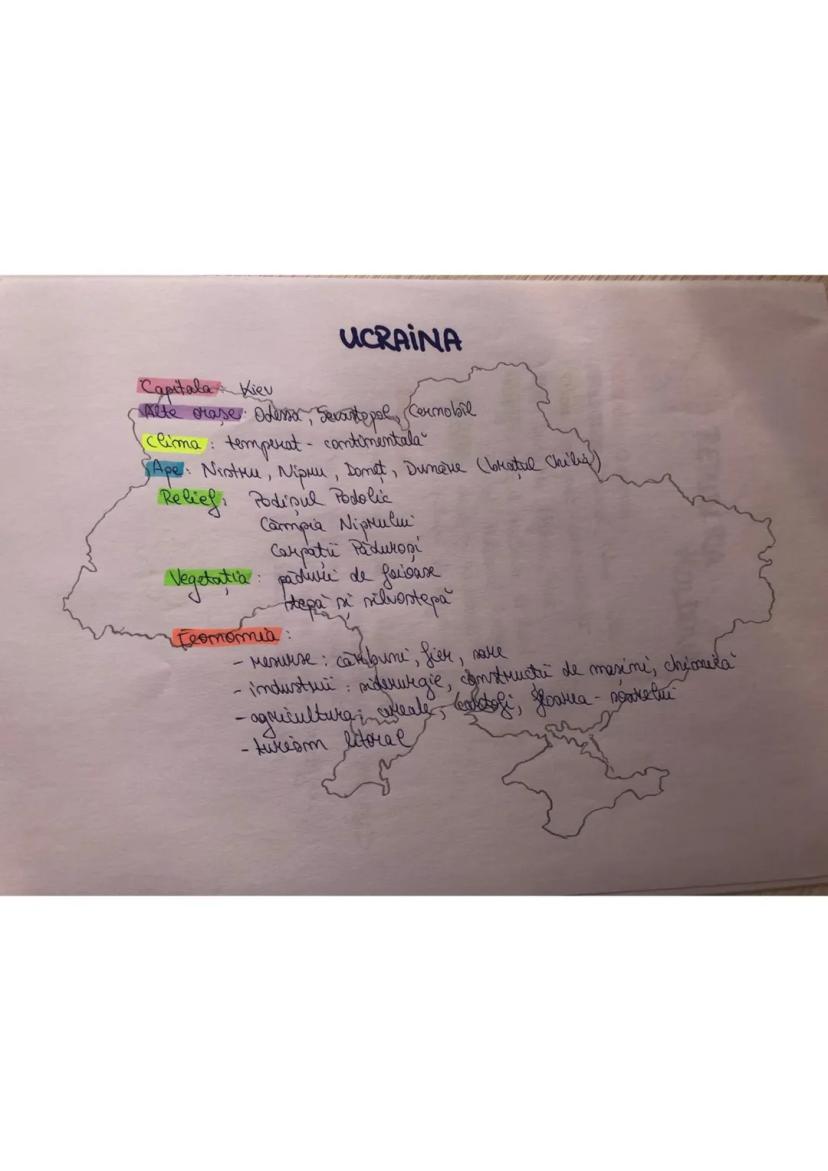 UCRAINA
Capitala: Kiev
Alte orașe: Odessa, Sevastopol, Cernobîl
Clima: temperat-continentală
Ape: Nistru, Nipru, Doneț, Dunăre (brațul Chilia)
Relief: Podișul Podolic
Câmpia Niprului
Carpații Păduroși
Vegetația: păduri de foioase
stepă și silvostepă
Economia:
- resurse: cărbuni, fier, sare
- industrii: siderurgie, construcții de mașini, chimică
- agricultura: cereale, cartofi, floarea-soarelui
- turism litoral